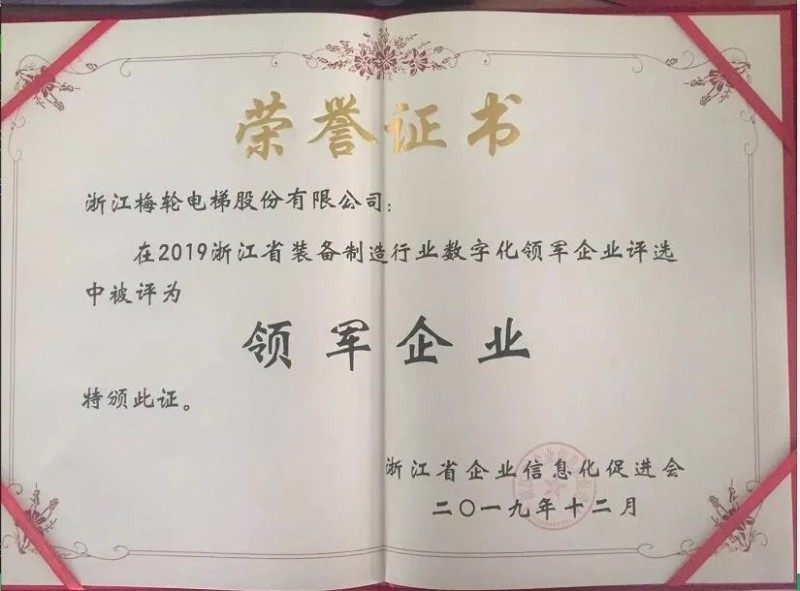 荣誉证书
浙江梅轮电梯股份有限公司：
在2019浙江省装备制造行业数字化领军企业评选
中被评为
领军企业
特颁此证。
浙江省企业信息化促进会
二〇一九年十二月